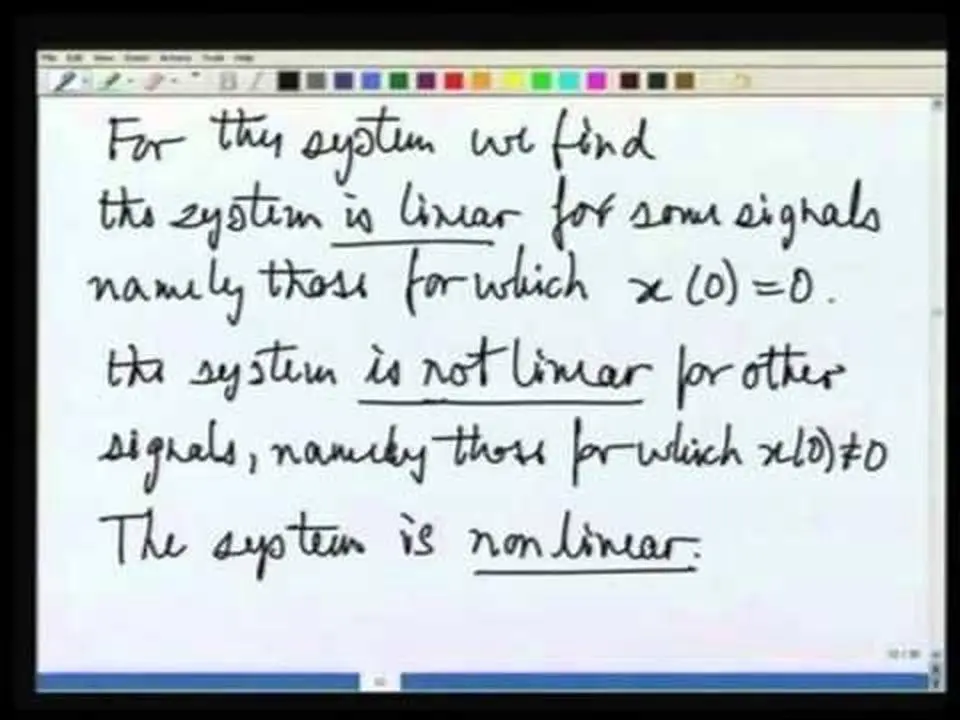 For this system we find
the system is linear for some signals
namely those for which x(0) = 0.
the system is not linear for other
signals, namely those for which x(0) ≠ 0
The system is nonlinear.